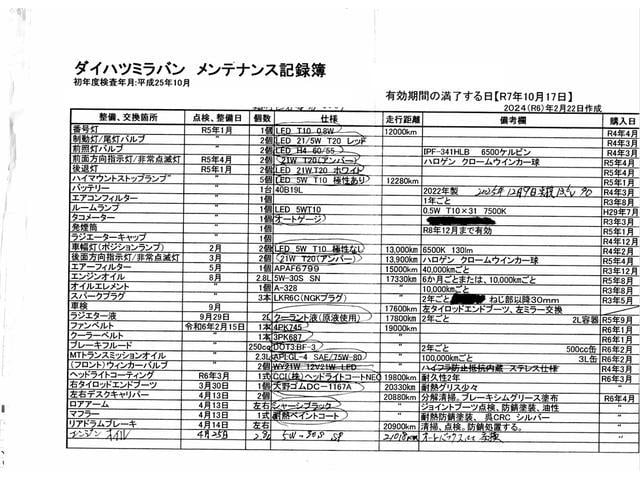 ダイハツミラバン メンテナンス記録簿
初年度検査年月:平成25年10月
有効期間の満了する日【R7年10月17日】
2024(R6)年2月22日作成
整備、交換箇所 点検、整備日 個数 仕様 走行距離 備考欄 購入日
番号灯 R5年1月 1個 LED T10 0.8W 12000km R4年4月
制動灯/尾灯バルブ 2個 LED 21/5W T20 レッド R4年3月
前照灯バルブ 2個 LED H4 60/55 IPF-341HLB 6500ケルビン R4年3月
前面方向指示灯/非常点滅灯 R5年4月 2個 21W T20(アンバー) ハロゲン クロームウインカー球 R5年4月
後退灯 R5年1月 2個 LED 21W T20 ホワイト R4年3月
ハイマウントストップランプ 5個 LED 5W T10 極性あり 12280km R5年1月
バッテリー 1台 40B19L 2022年製 R4年3月
エアコンフィルター 1個 1年ごと R3年8月
ルームランプ 1個 LED 5WT10 0.5W T10×31 7500K H29年7月
タコメーター 1個 オートゲージ R3年3月
発煙筒 1個 R8年12月まで有効 R5年1月
ラジエターキャップ 1個 R4年12月
車幅灯(ポジションランプ) 2月 2個 LED 5W T10 極性なし 13,000km 6500K 130lm R4年2月
後面方向指示灯/非常点滅灯 3月 2個 21W T20(アンバー) 13,900km ハロゲン クロームウインカー球 R4年1月
エアーフィルター 5月 1個 APAF6799 15000km 40,000kmごと R5年4月
エンジンオイル 8月 2.8L 5W-30S SN 17330km 6か月ごとまたは、10,000kmごと R5年3月
オイルエレメント 1個 A-328 10,000kmごと R4年3月
スパークプラグ 3本 LKR6C(NGKプラグ) 2年ごと ねじ部以降30mm R3年5月
車検 9月 17600km 左タイロッドエンドブーツ、左ミラー交換
ラジエター液 9月29日 2L クーラント液(原液使用) 17800km 2年ごと 2L容器 R5年9月
ファンベルト 令和6年2月15日 1本 4PK745 19000km R6年2月
クーラーベルト 1本 3PK687 R6年2月
ブレーキフルード 250cc DOT3 BF-3 2年ごと 500cc缶 R6年2月
MTトランスミッションオイル 2.3L APLGL-4 SAE/75W-80 100,000kmごと 3L缶 R6年2月
(フロント)ウィンカーバルブ 2個 WY21W 12V21W LED ハイフラ防止抵抗内蔵 ステレス仕様 R4年3月
ヘッドライトコーティング R6年3月 1式 CCI(株)ヘッドライトコートNEO 19800km 耐久性2年 R6年2月
右タイロッドエンドブーツ 3月30日 1個 大野ゴムDC-1167A 20330km 耐熱グリス少々 R6年3月
左右デスクキャリパー 4月13日 2個 20880km 分解清掃。ブレーキシムグリース塗布 R6年4月
ロアアーム 4月13日 左右 シャーシブラック ジョイントブーツ点検、防錆塗装、油性
マフラー 4月13日 1式 耐熱ペイントコート 耐熱防錆塗装、 呉CRC シルバー
リアドラムブレーキ 4月14日 左右 20900km 清掃、点検。防錆処理する。
エンジンオイル 4月25日 5W-30S SP